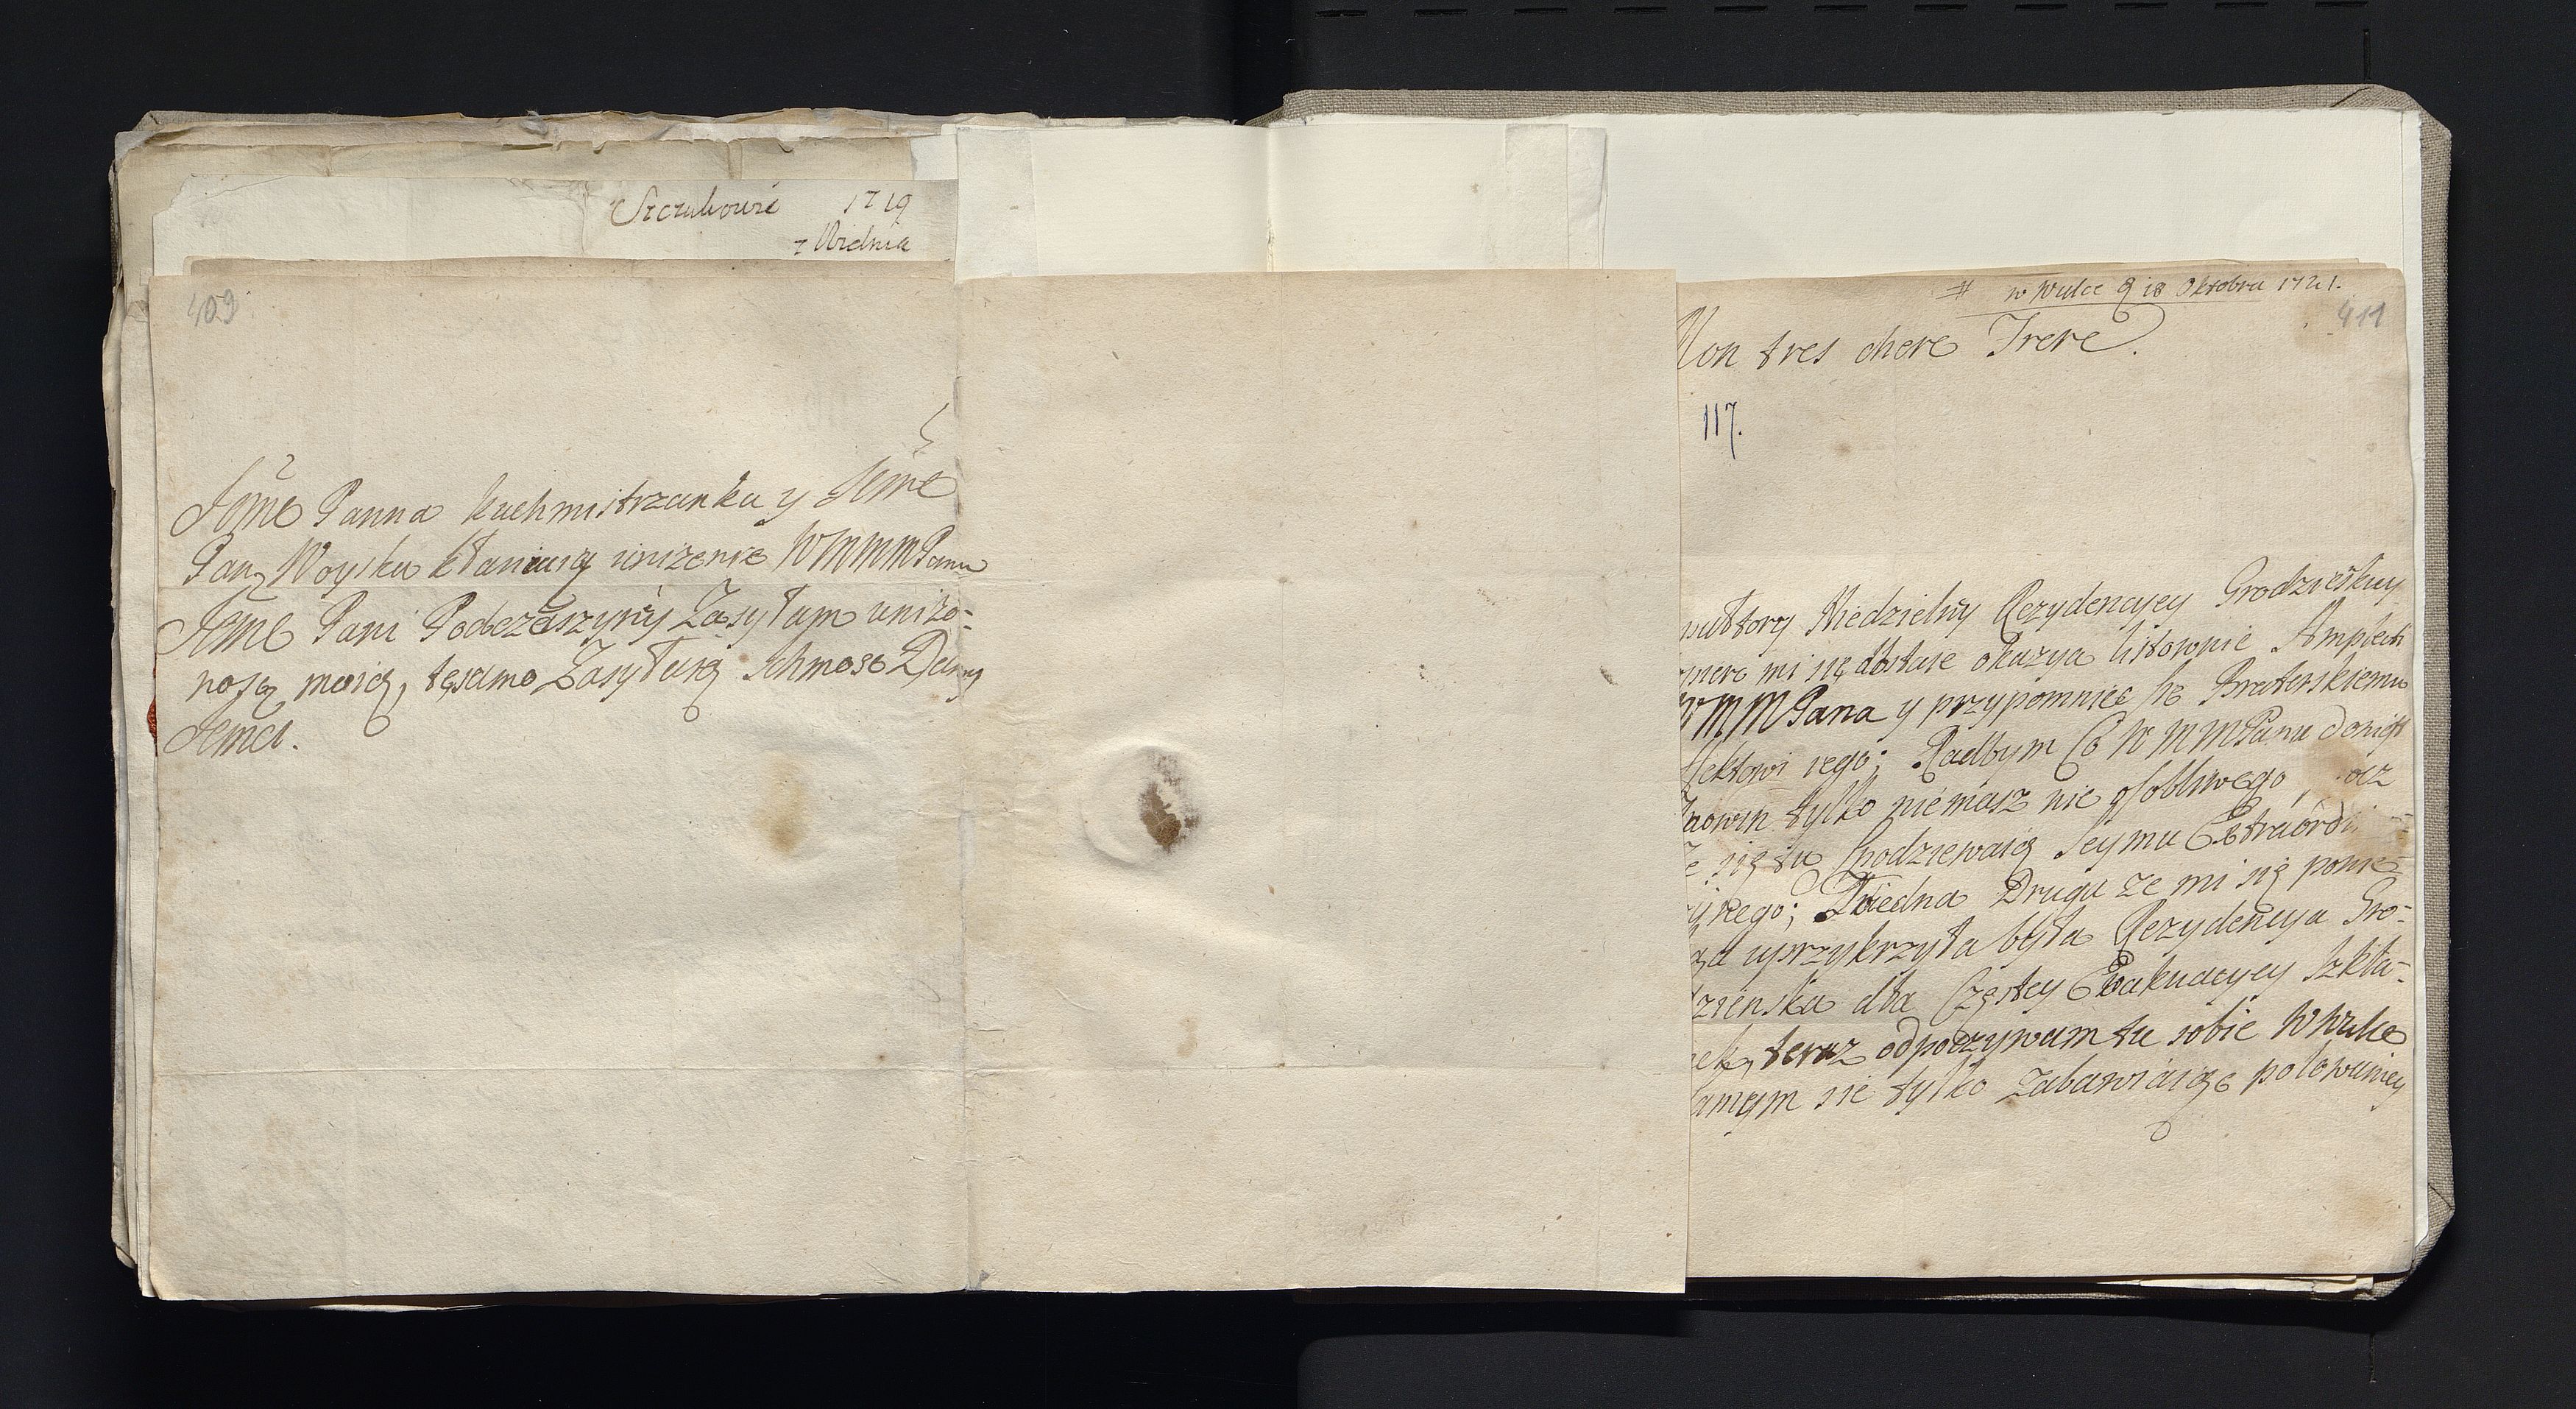 Szczukowie 1719
z Widnia
409
Jeme Panna kuchmistrzanka y Jeme
Pani Woyska kłaniaią uniżenie WMMMPanu
Jeme Pani Podczaszyny Zasyłam uniżo-
nosę moią, tęsamo Zasyłaią Ichmość Damy
Jemci.
# w Wulce d 18 Oktobra 1721.
411
Mon tres chere Frere.
117.
Niedzielny Rezydencyey Grodzieskiey
mi się dostaie okazya listownie Amplecti
WMMPana y przypomnieć się Braterskiemu
fektowi iego; Radbym Co WMMPanu doniosł
nowin tylko niemasz nic osobliwego,
się tu spodziewaią Seymu Extraordi
Iedna Druga że mi się ponie-
uprzykrzyła była Rezydencya Gro-
dzienska dla Częstey Ewakuacyey Szkla-
nek, teraz odpoczywam tu sobie w Wulce
samym sie tylko zabawiaiąc polowaniey